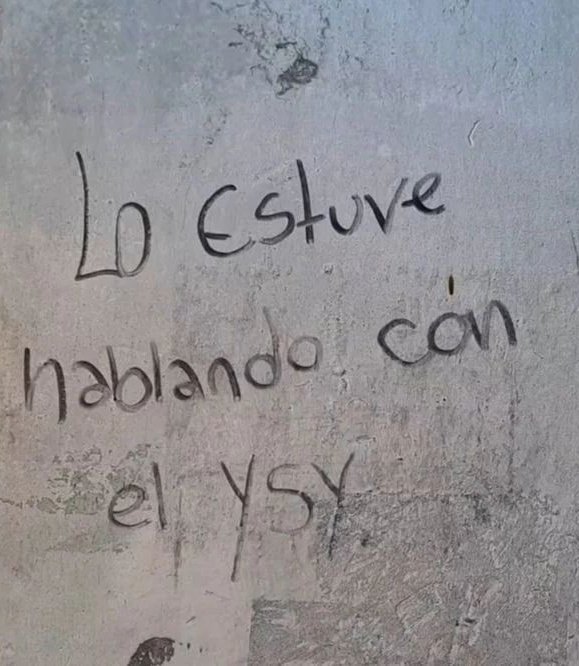 Lo Estuve
hablando con
el YSY